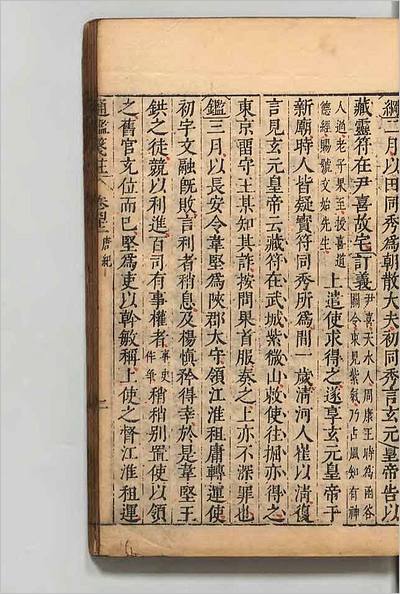 綱二月以田同秀爲朝散大夫初同秀言玄元皇帝告以
藏靈符在尹喜故宅訂義尹喜天水人周康王時爲函谷
關令東見紫氣乃占風知有神
人過老子果至授喜道
德經賜號文始先生上遣使求得之遂享玄元皇帝于
新廟時人皆疑寶符同秀所爲間一歲清河人崔以清復
言見玄元皇帝云藏符在武城紫微山敕使往掘亦得之
東京留守王某知其詐按問果首服奏之上亦不深罪也
鑑三月以長安令韋堅爲陝郡太守領江淮租庸轉運使
初宇文融旣敗言利者稍息及楊愼矜得幸於是韋堅王
鉷之徒競以利進百司有事權者事史
作爭稍稍別置使以領
之舊官充位而已堅爲吏以幹敏稱上使之督江淮租運
通鑑箋註 卷 唐紀 二